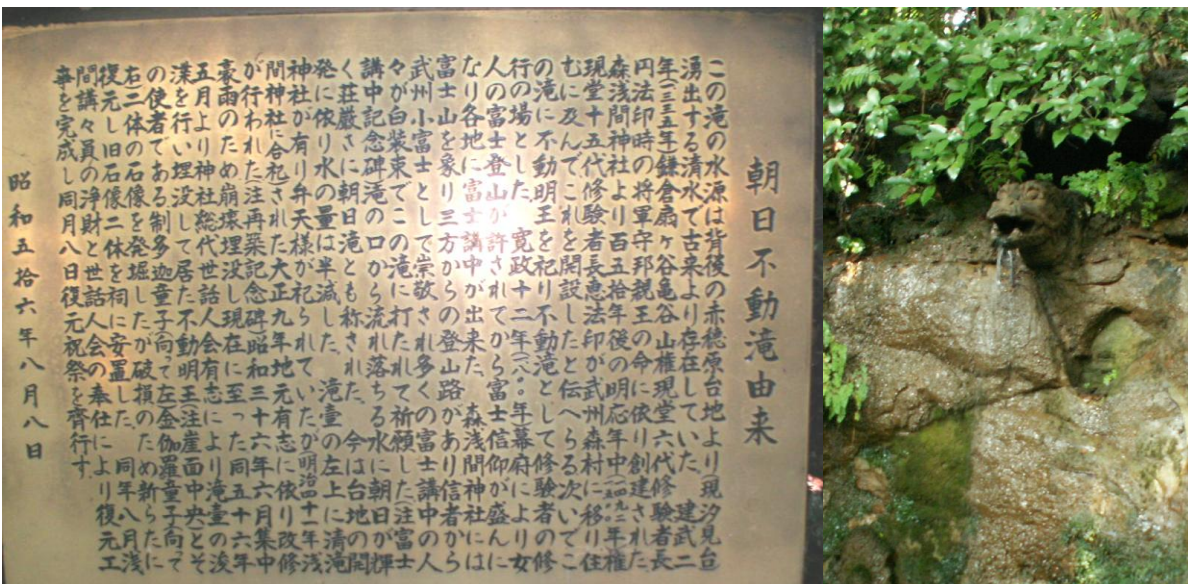 朝日不動滝由来
この滝の水源は背後の赤穂原台地より(現汐見台
湧出する清水で古来より存在していた。建武二
年(一三三五年)鎌倉扇ヶ谷亀谷山権現堂六代修験者長
円法印時の将軍守邦親王の命に依り創建された
森浅間神社より百五拾年後の明応年中(一四九二年)権
現堂十五代修験者長恵法印が武州森村に移り住
むに及んでこれを開設したと伝へらる次いでこ
の滝に不動明王を祀り不動滝として修験者の修
行の場とした。寛政十二年(一八〇〇年)幕府により女
人の富士登山が許されてから富士信仰が盛んに
なり各地に富士講中が出来た。森浅間神社には
富士山を象り三方からの登山路があり信者から
武州小富士として崇敬され多くの富士講中の人
々が白装束でこの滝に打たれて祈願した(注富士
講中記念碑)滝の口から流れ落ちる水に朝日が輝
く荘厳さに朝日滝とも称された。今は台地の開
発に依り水の量は半減した。滝壷の左上に清滝
神社が有り弁天様が祀られていたが明治四十一年浅
間神社に合祀された大正九年地元有志に依り改修
が行われた(注再築記念碑)昭和三十六年六月集中
豪雨のため崩壊埋没し現在に至った同五十六年
五月より神社総代世話人会有志により滝壷の浚
渫を行い埋没して居た不動明王(注崖面中央)とそ
の使者である制多迦童子(向って左)金伽羅童子(向って
右)二体の石像を発掘したが破損のため新らたに
復元し旧石像二体を祠に安置した。同年八月浅
間講々員の浄財と世話人会の奉仕により復元工
事を完成し同月八日復元祝祭を斉行す。
昭和五拾六年八月八日